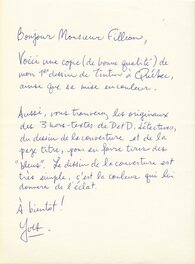 Bonjour Monsieur Fillion,
Voici une copie (de bonne qualité) de
mon 1er dessin de Tintin à Québec,
ainsi que sa mise en couleur.
Aussi, vous trouverez les originaux
des 3 hors-textes de D et D, sélectures,
du dessin de la couverture et de la
page titre, pour en faire tirer des
"bleus". Le dessin de la couverture est
très simple, c'est la couleur qui lui
donnera de l'éclat.
À bientôt!
Yves